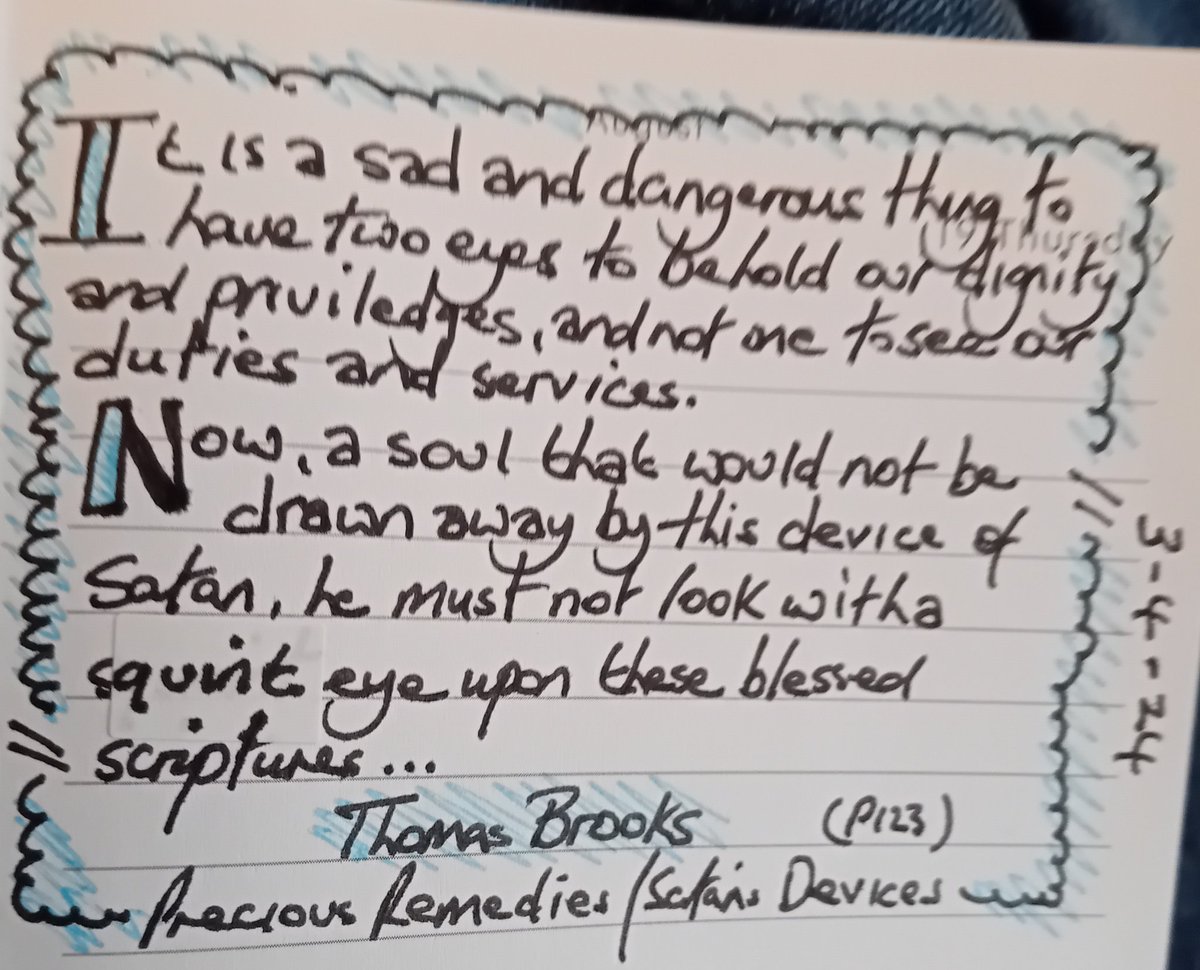 August
It is a sad and dangerous thing to
19 Thursday
have two eyes to behold our dignity
and priviledges, and not one to see our
duties and services.
Now, a soul that would not be
drawn away by this device of
Satan, he must not look with a
squint eye upon these blessed
scriptures...
Thomas Brooks (P123)
Precious Remedies/Satan's Devices
3-4-24